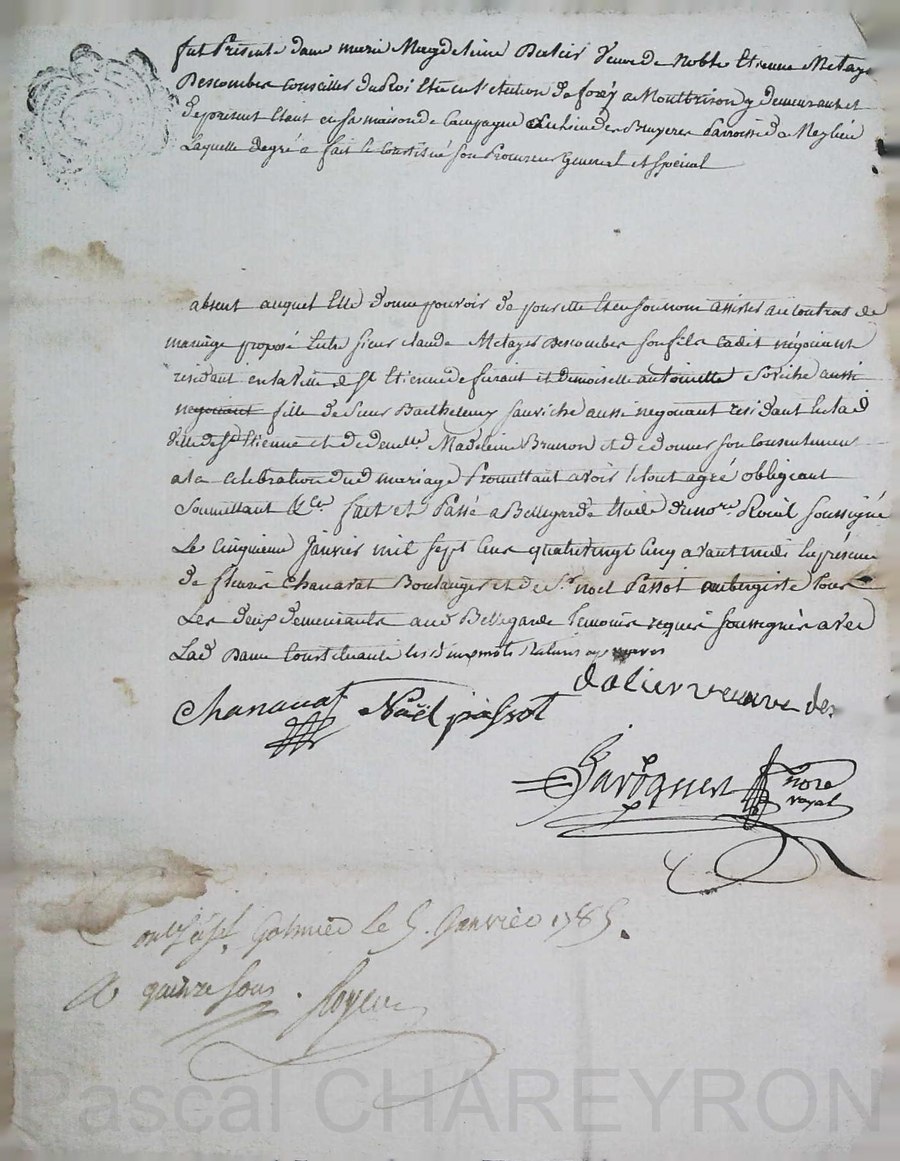 fut Présente dame marie Magdeleine Dalier Veuve de Noble Etienne Metaye
Descombes Conseiller du Roi Elu en l'election de forêz a Montbrison y demeurant et
de présent étant en sa maison de Campagne des Bruyeres Parroisse de Meylieu
Laquelle degré a fait et constitué son Procureur General et spécial
absent auquel Elle donne pouvoir de pour elle et en son nom assister au Contrat de
mariage proposé Entre sieur claude Metayer Descombes son fils Cadet négociant
résidant en la Ville de St Etienne de furant et demoiselle antoinette Soviche aussi
negociant fille de sieur Barthelemy Sauviche aussi negociant résidant en lad
ville de St Etienne et de demlle Madeleine Brunon et de donner son Consentement
a la Célébration dud mariage Promettant avoir le tout agré obligeant
Soumettant &ca fait et Passé a Bellegarde Etude du nore Roial soussigné
Le Cinquieme Janvier mil sept Cent quatrevingt Cinq avant midi En présence
de Chanavat Boulanger et de Sr noël Passot aubergiste Tous
Les deux demeurants aud Bellegarde Temoins requis soussignés avec
Lad Dame Constituante les deux mots
Chanavat Noël passot dalier veuve des
nore
royal
Conlé à St Galmier le 5. Janvier 1785.
R quinze sous.
Pascal CHAREYRON